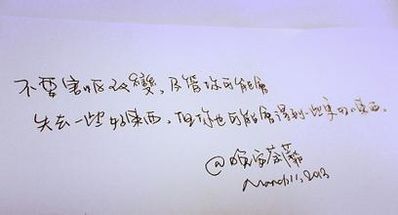 不要害怕改變，尽管你可能會
失去一些好東西，但你也可能會得到一些更好的東西。
@晚安
March 11, 2013